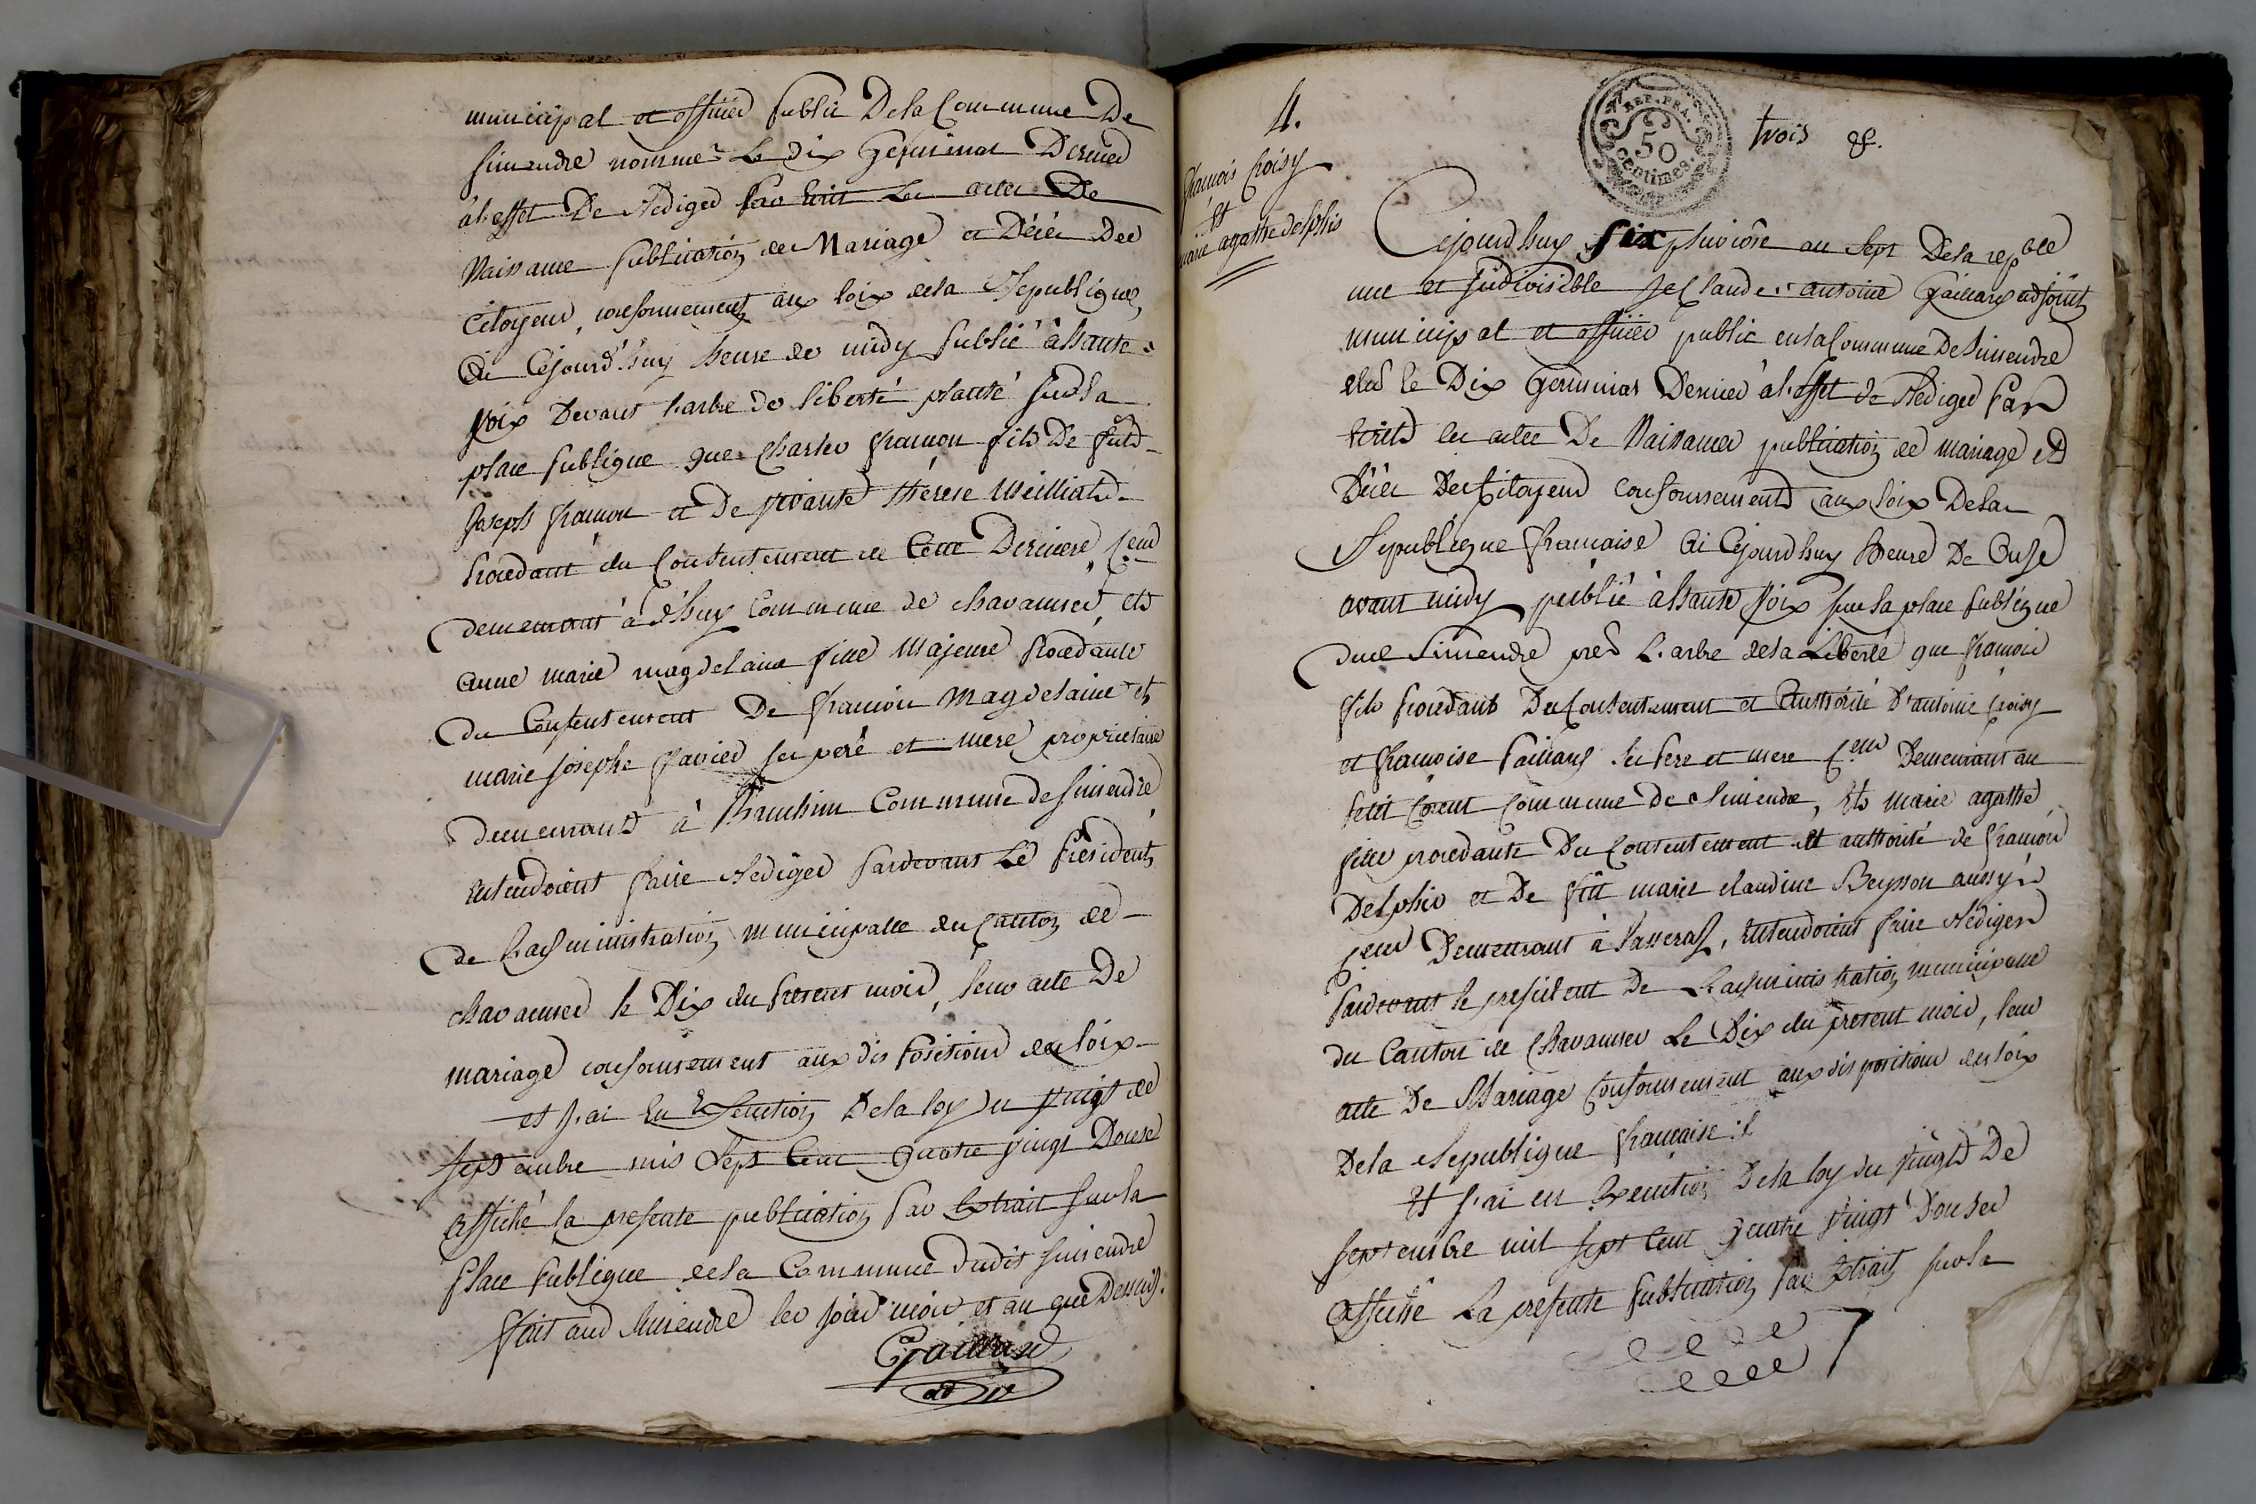 municipal et officier public De la Commune De
simandre nommé Le Dix Germinal Dernier
à l'effet De Rediger par Ecrit Les actes De
Naissance publication de Mariage et Décés Des
Citoyens, conformement aux loix dela Republique,
Ai Cejourd'huy heure de midy publié à haute
voix Devant l'arbre de liberté planté sur la
place publique que Charles françon fils De feu
Joseph françon et De vivante thérese Meilliat
procedant du Consentement de Cette Derniere,
demeurant à commune de chavannes, et
anne marie magdelaine fille Majeure procedante
du Consentement De françois magdelaine et
marie josephe pavier ses peré et mere propriétaire
demeurants à Commune de simandre,
entendoient faire Rediger pardevant Le President
de L'administration municipalle du Canton de
chavannes le Dix du present mois, leur acte De
mariage conformement aux dispositions des loix
et j'ai En Execution De la loy Du vingt de
septembre mis Sept Cent Quatre vingt Douze
affiché la presente publication par Extrait sur la
place publique dela Commune dudit simandre
fait aud Simandre les jour mois et an que Dessus.
Gaillard
ad
4.
REP. FRA.
50
centimes.
trois
françois Croisy
et
marie agathe delphis
Cejourd'huy six pluviose an sept De la repce
une et indivisible Je Claude antoine Gaillard adjoint
municipal et officier public en la Commune De Simandre
elu le Dix Germinal Dernier à l'effet de Rediger par
Ecrit les actes De Naissance publication de mariage et
Décés Des Citoyens conformement aux loix De la
Republique francaise Ai Cejourd'huy heure De Onze
avant midy publié à haute voix sur la place publique
dud Simandre pres L'arbre dela Liberté que françois
fils procedant Du Consentement et Authorité D'antoine Croisy
et françoise ses pere et mere Demeurant au
petit Corent Commune de Simandre, et marie agathe
fille procedante Du Consentement et authorité de françois
Delphis et De fût marie claudine Beysson aussy
Demeurant à Lasserat, entendoient faire Rediger
pardevant le president De L'administration municipale
du Canton de Chavannes Le Dix du present mois, leur
acte De Mariage Conformement aux dispositions des loix
De la Republique francaise
Et j'ai en Execution De la loy du vingt De
septembre mil sept Cent Quatre vingt Douze
affiché La presente publication par Extrait sur la